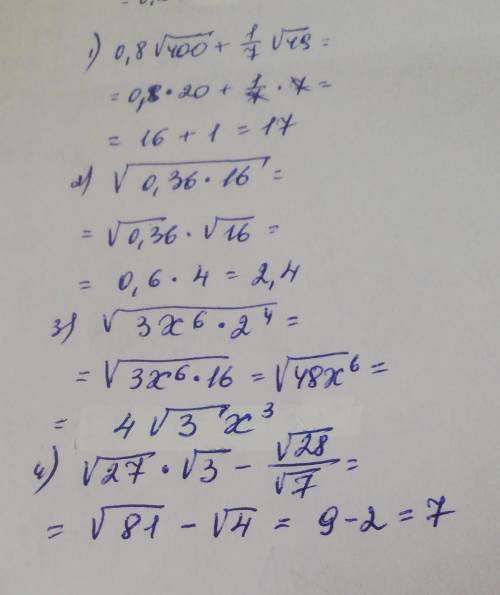 1) 0,8√400 + 1/7 √49 =
= 0,8 · 20 + 1/7 · 7 =
= 16 + 1 = 17
2) √0,36 · 16 =
= √0,36 · √16 =
= 0,6 · 4 = 2,4
3) √3x⁶ · 2⁴ =
= √3x⁶ · 16 = √48x⁶ =
= 4√3 x³
4) √27 · √3 − √28/√7 =
= √81 − √4 = 9 − 2 = 7